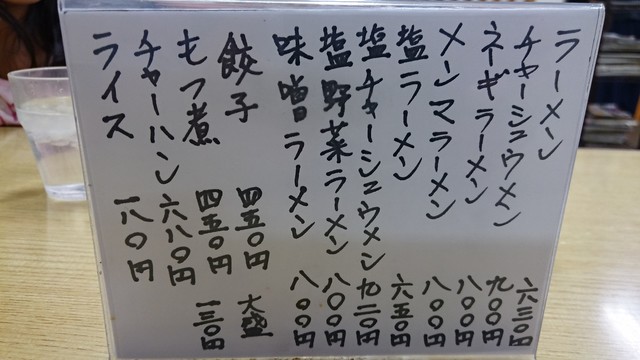 ラーメン 六三〇円
チャーシュウメン 九〇〇円
ネギラーメン 八〇〇円
メンマラーメン 八〇〇円
塩ラーメン 六五〇円
塩チャーシュウメン 九二〇円
塩野菜ラーメン 八〇〇円
味噌ラーメン 八〇〇円
餃子 四五〇円 大盛
もつ煮 四五〇円 一三〇円
チャーハン 六八〇円
ライス 一八〇円